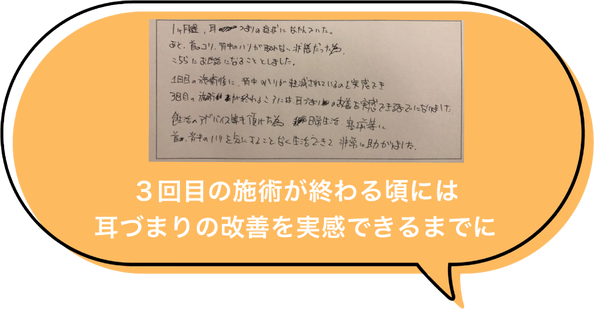 1ヶ月程、耳つまりの症状になやんでいた。
あと、首のコリ、背中のハリが取れない状態だった為、
こちらにお世話になることとしました。
1回目の施術後に、背中のハリが軽減されているのを実感でき
3回目の施術が終わるころには耳づまりの改善を実感できるまでになりました
食生活のアドバイス等も頂けた為 日常生活
首、背中のハリを気にすることなく生活できて 非常に助かりました。
3回目の施術が終わる頃には
耳づまりの改善を実感できるまでに